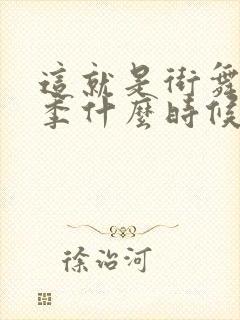 這就是街舞
季什麼時候
徐治河